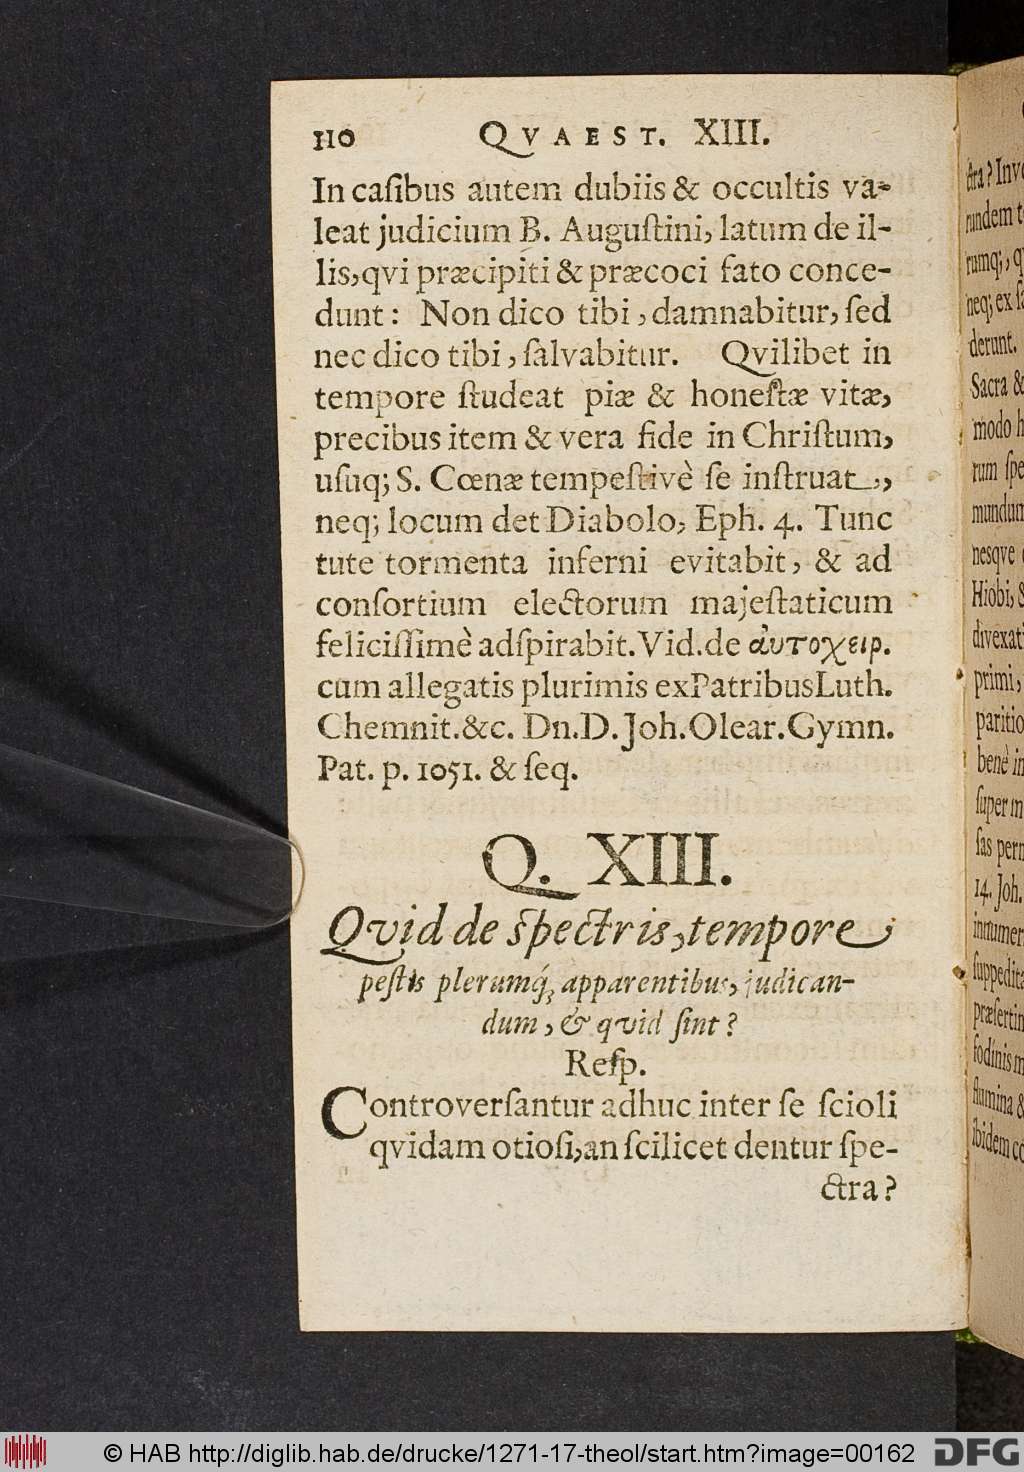 110 QVAEST. XIII.
In caſibus autem dubiis & occultis va-
leat judicium B. Auguſtini, latum de il-
lis, qvi præcipiti & præcoci fato conce-
dunt: Non dico tibi, damnabitur, ſed
nec dico tibi, ſalvabitur. Qvilibet in
tempore ſtudeat piæ & honeſtæ vitæ,
precibus item & vera fide in Chriſtum,
uſuq; S. Cœnæ tempeſtivè ſe inſtruat,
neq; locum det Diabolo, Eph. 4. Tunc
tute tormenta inferni evitabit, & ad
conſortium electorum majeſtaticum
feliciſſimè adſpirabit. Vid. de ἀυτοχειρ.
cum allegatis plurimis ex Patribus Luth.
Chemnit. &c. Dn. D. Joh. Olear. Gymn.
Pat. p. 1051. & ſeq.
Q. XIII.
Qvid de ſpectris, tempore
peſtis plerumq́;, apparentibus, judican-
dum, & qvid ſint?
Reſp.
Controverſantur adhuc inter ſe ſcioli
qvidam otioſi, an ſcilicet dentur ſpe-
ctra?
ctra? Inv
rundem t
rumq;, q
neq; ex ſa
derunt.
Sacra &
modo h
rum ſpe
mundum
nesqve
Hiobi, &
divexati
primi,
paritio
benè in
ſuper m
ſas perm
14. Joh.
innumer
ſuppedita
præſertim
fodinis m
flumina &
ibidem co
© HAB http://diglib.hab.de/drucke/1271-17-theol/start.htm?image=00162
DFG